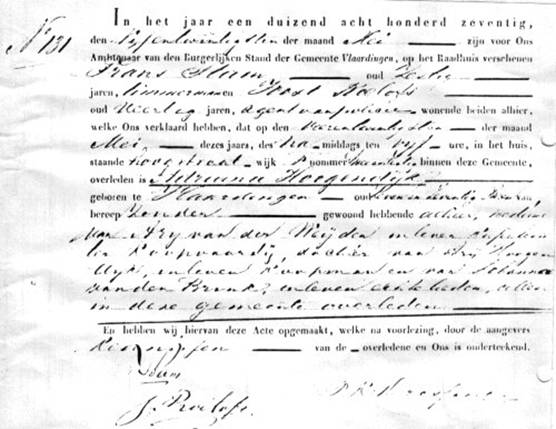 Nº 131
In het jaar een duizend acht honderd zeventig,
den Vijfentwintigsten der maand Mei zijn voor Ons
Ambtenaar van den Burgerlijken Stand der Gemeente Vlaardingen, op het Raadhuis verschenen
Frans Stam oud
jaren, timmerman Joost Roelofs
oud Veertig jaren, agent van politie wonende beiden alhier,
welke Ons verklaard hebben, dat op den der maand
Mei dezes jaars, des na middags ten vijf ure, in het huis,
staande hoogstraat wijk nommer binnen deze Gemeente,
overleden is Adriana Hoogendijk
geboren te Vlaardingen oud jaren, van
beroep zonder gewoond hebbende alhier, weduwe
van Ary van der Weijden in leven Kapitein
ter Koopvaardij, dochter van Hoogen
dijk, in leven Koopman en van Johanna
van den in leven echtelieden, allen
in deze gemeente overleden
En hebben wij hiervan deze Acte opgemaakt, welke na voorlezing, door de aangevers
van de overledene en Ons is onderteekend.
Stam
J. Roelofs.